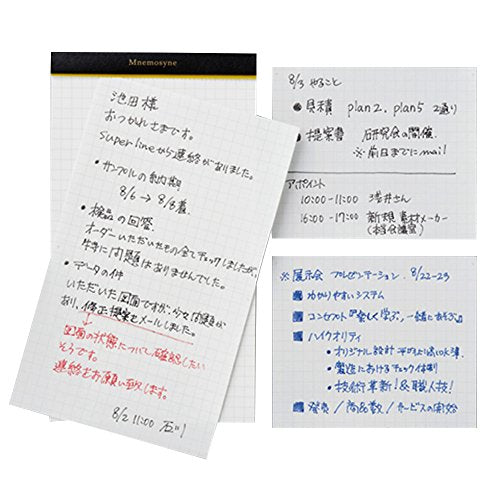 Mnemosyne
池田様
おつかれさまです。
Super lineから連絡がありました。
・サンプルの納期
8/6 → 8/8着
・検品の回答
オーダーいただいたもの全てチェックしましたが、
特に問題はありませんでした。
・データの件
いただいた図面ですが、少々問題が
あり、修正提案をメールしました。
図面の状態について、確認したい
そうです。
連絡をお願い致します。
8/2 11:00 石川
8/3 やること
● 見積 plan2. plan5 2通り
● 提案書 研究会の開催
※前日までにmail
アポイント
10:00-11:00 浅井さん
16:00-17:00 新規 素材メーカー
(本当会議室)
※展示会 プレゼンテーション 8/22-23
わかりやすいシステム
コンセプト『楽しく学ぶ、一緒にあそぶ』
ハイクオリティ
・オリジナル設計
・製造におけるチェック体制
・技術革新!&職人技!
発売/商品数/サービスの開始